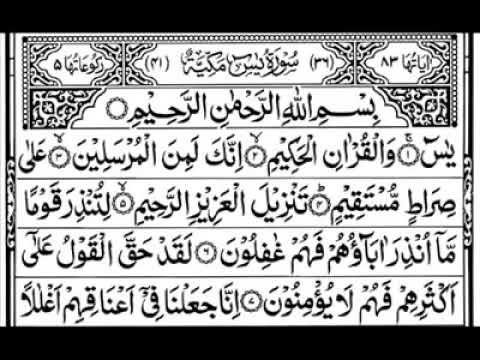 اٰيَاتُهَا ٨٣ (٣٦) سُوْرَةُ يٰسٓ مَكِّيَّةٌ (٤١) رُكُوْعَاتُهَا ٥
بِسْمِ اللّٰهِ الرَّحْمٰنِ الرَّحِيْمِ
يٰسٓ ۚ‏﴿۱﴾ وَالْقُرْاٰنِ الْحَكِيْمِ ۙ‏﴿۲﴾ اِنَّكَ لَمِنَ الْمُرْسَلِيْنَ ۙ‏﴿۳﴾ عَلٰى
صِرَاطٍ مُّسْتَقِيْمٍ ؕ‏﴿۴﴾ تَنْزِيْلَ الْعَزِيْزِ الرَّحِيْمِ ۙ‏﴿۵﴾ لِتُنْذِرَ قَوْمًا
مَّاۤ اُنْذِرَ اٰبَآؤُهُمْ فَهُمْ غٰفِلُوْنَ ‏﴿۶﴾ لَقَدْ حَقَّ الْقَوْلُ عَلٰٓى
اَكْثَرِهِمْ فَهُمْ لَا يُؤْمِنُوْنَ ‏﴿۷﴾ اِنَّا جَعَلْنَا فِىْۤ اَعْنَاقِهِمْ اَغْلٰلًا